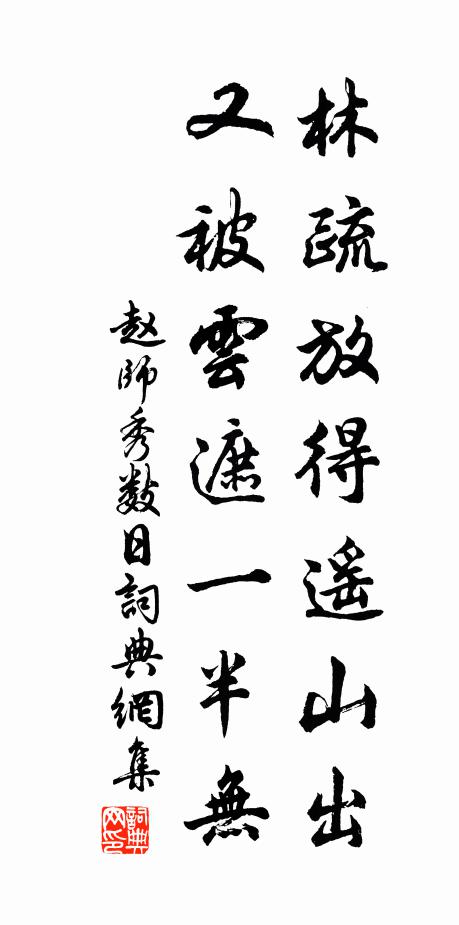 林疏放得遥山出
又被雲遮一半無
赵師秀數日詞典網集
詞典网印